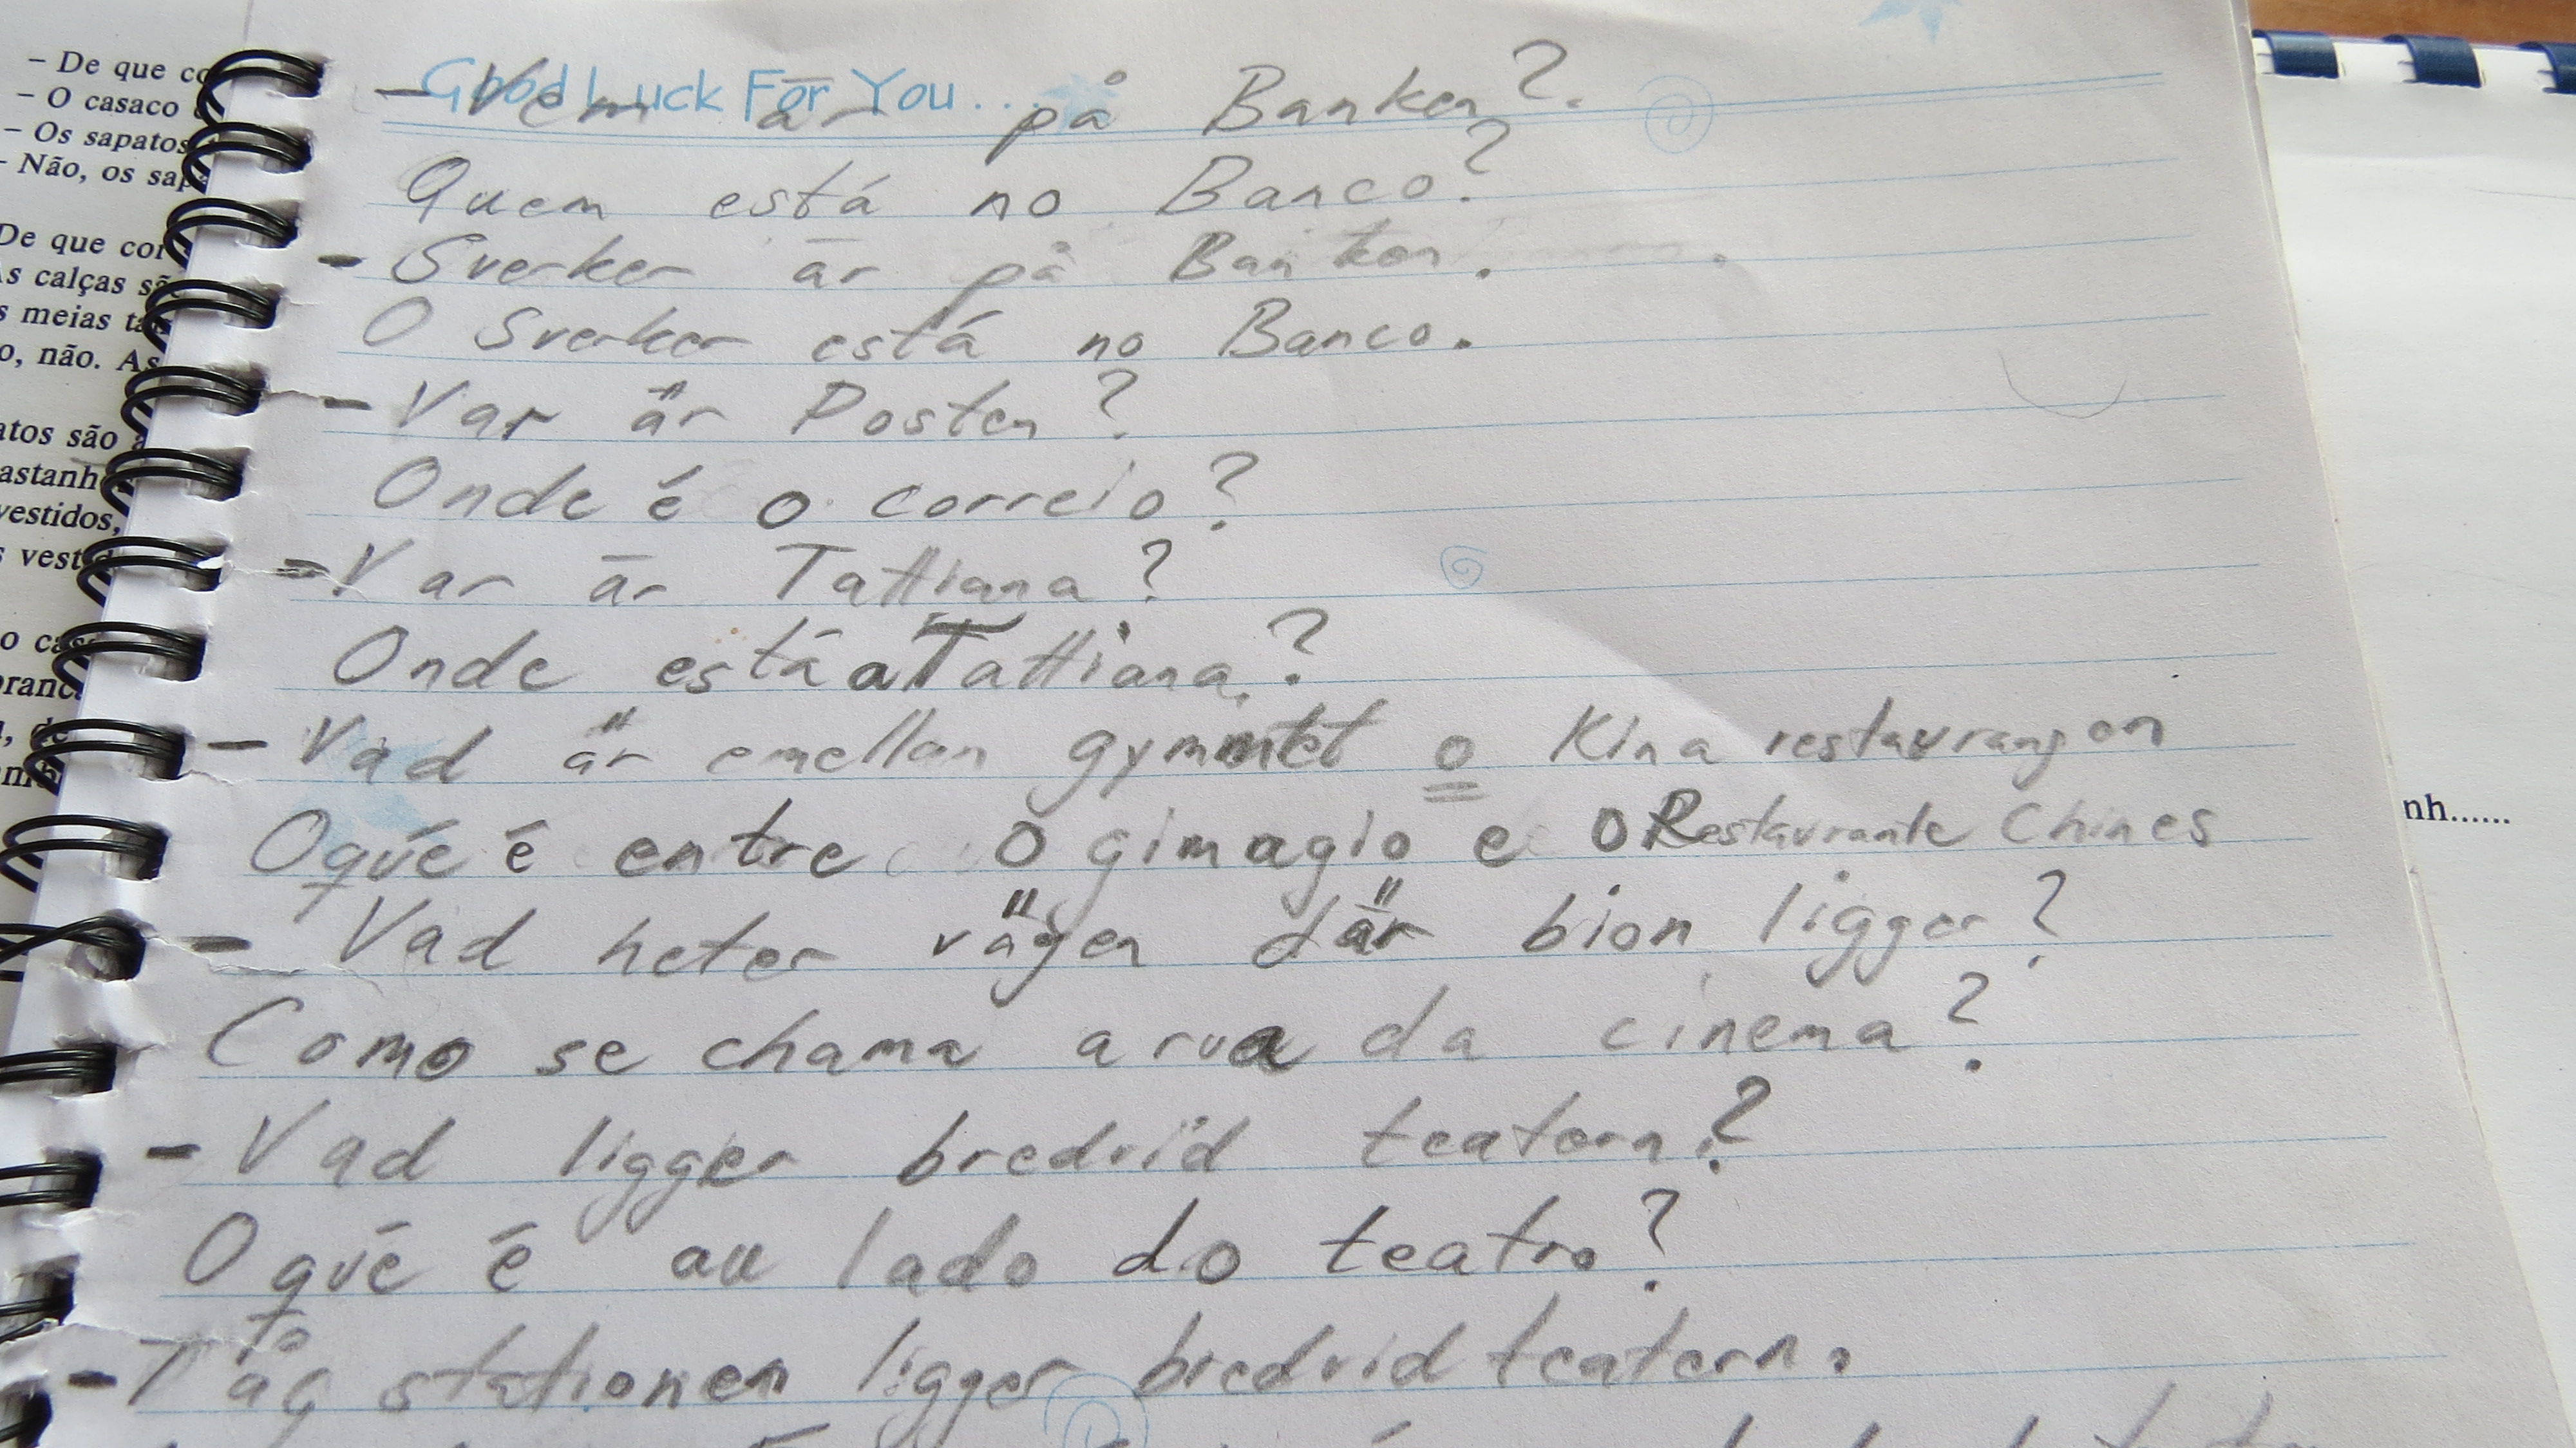 Good Luck For You...
- Vem är på Banken?
Quem está no Banco?
- Sverker är på Banken.
O Sverker está no Banco.
- Var är Posten?
Onde é o correio?
- Var är Tattiana?
Onde está a Tattiana?
- Vad är emellan gymmtet o Kina restaurangen
Oqué é entre o gimagio e o Restaurante Chines
- Vad heter vägen där bion ligger?
Como se chama a rua da cinema?
- Vad ligger bredvid teatern?
O qué é au lado do teatro?
- Tåg stationen ligger bredvid teatern.
- De que co
- O casaco
- Os sapatos
- Não, os sap
De que cor
As calças sã
s meias ta
o, não. As
atos são a
astanh
vestidos,
s vest
o cas
branc
nh......